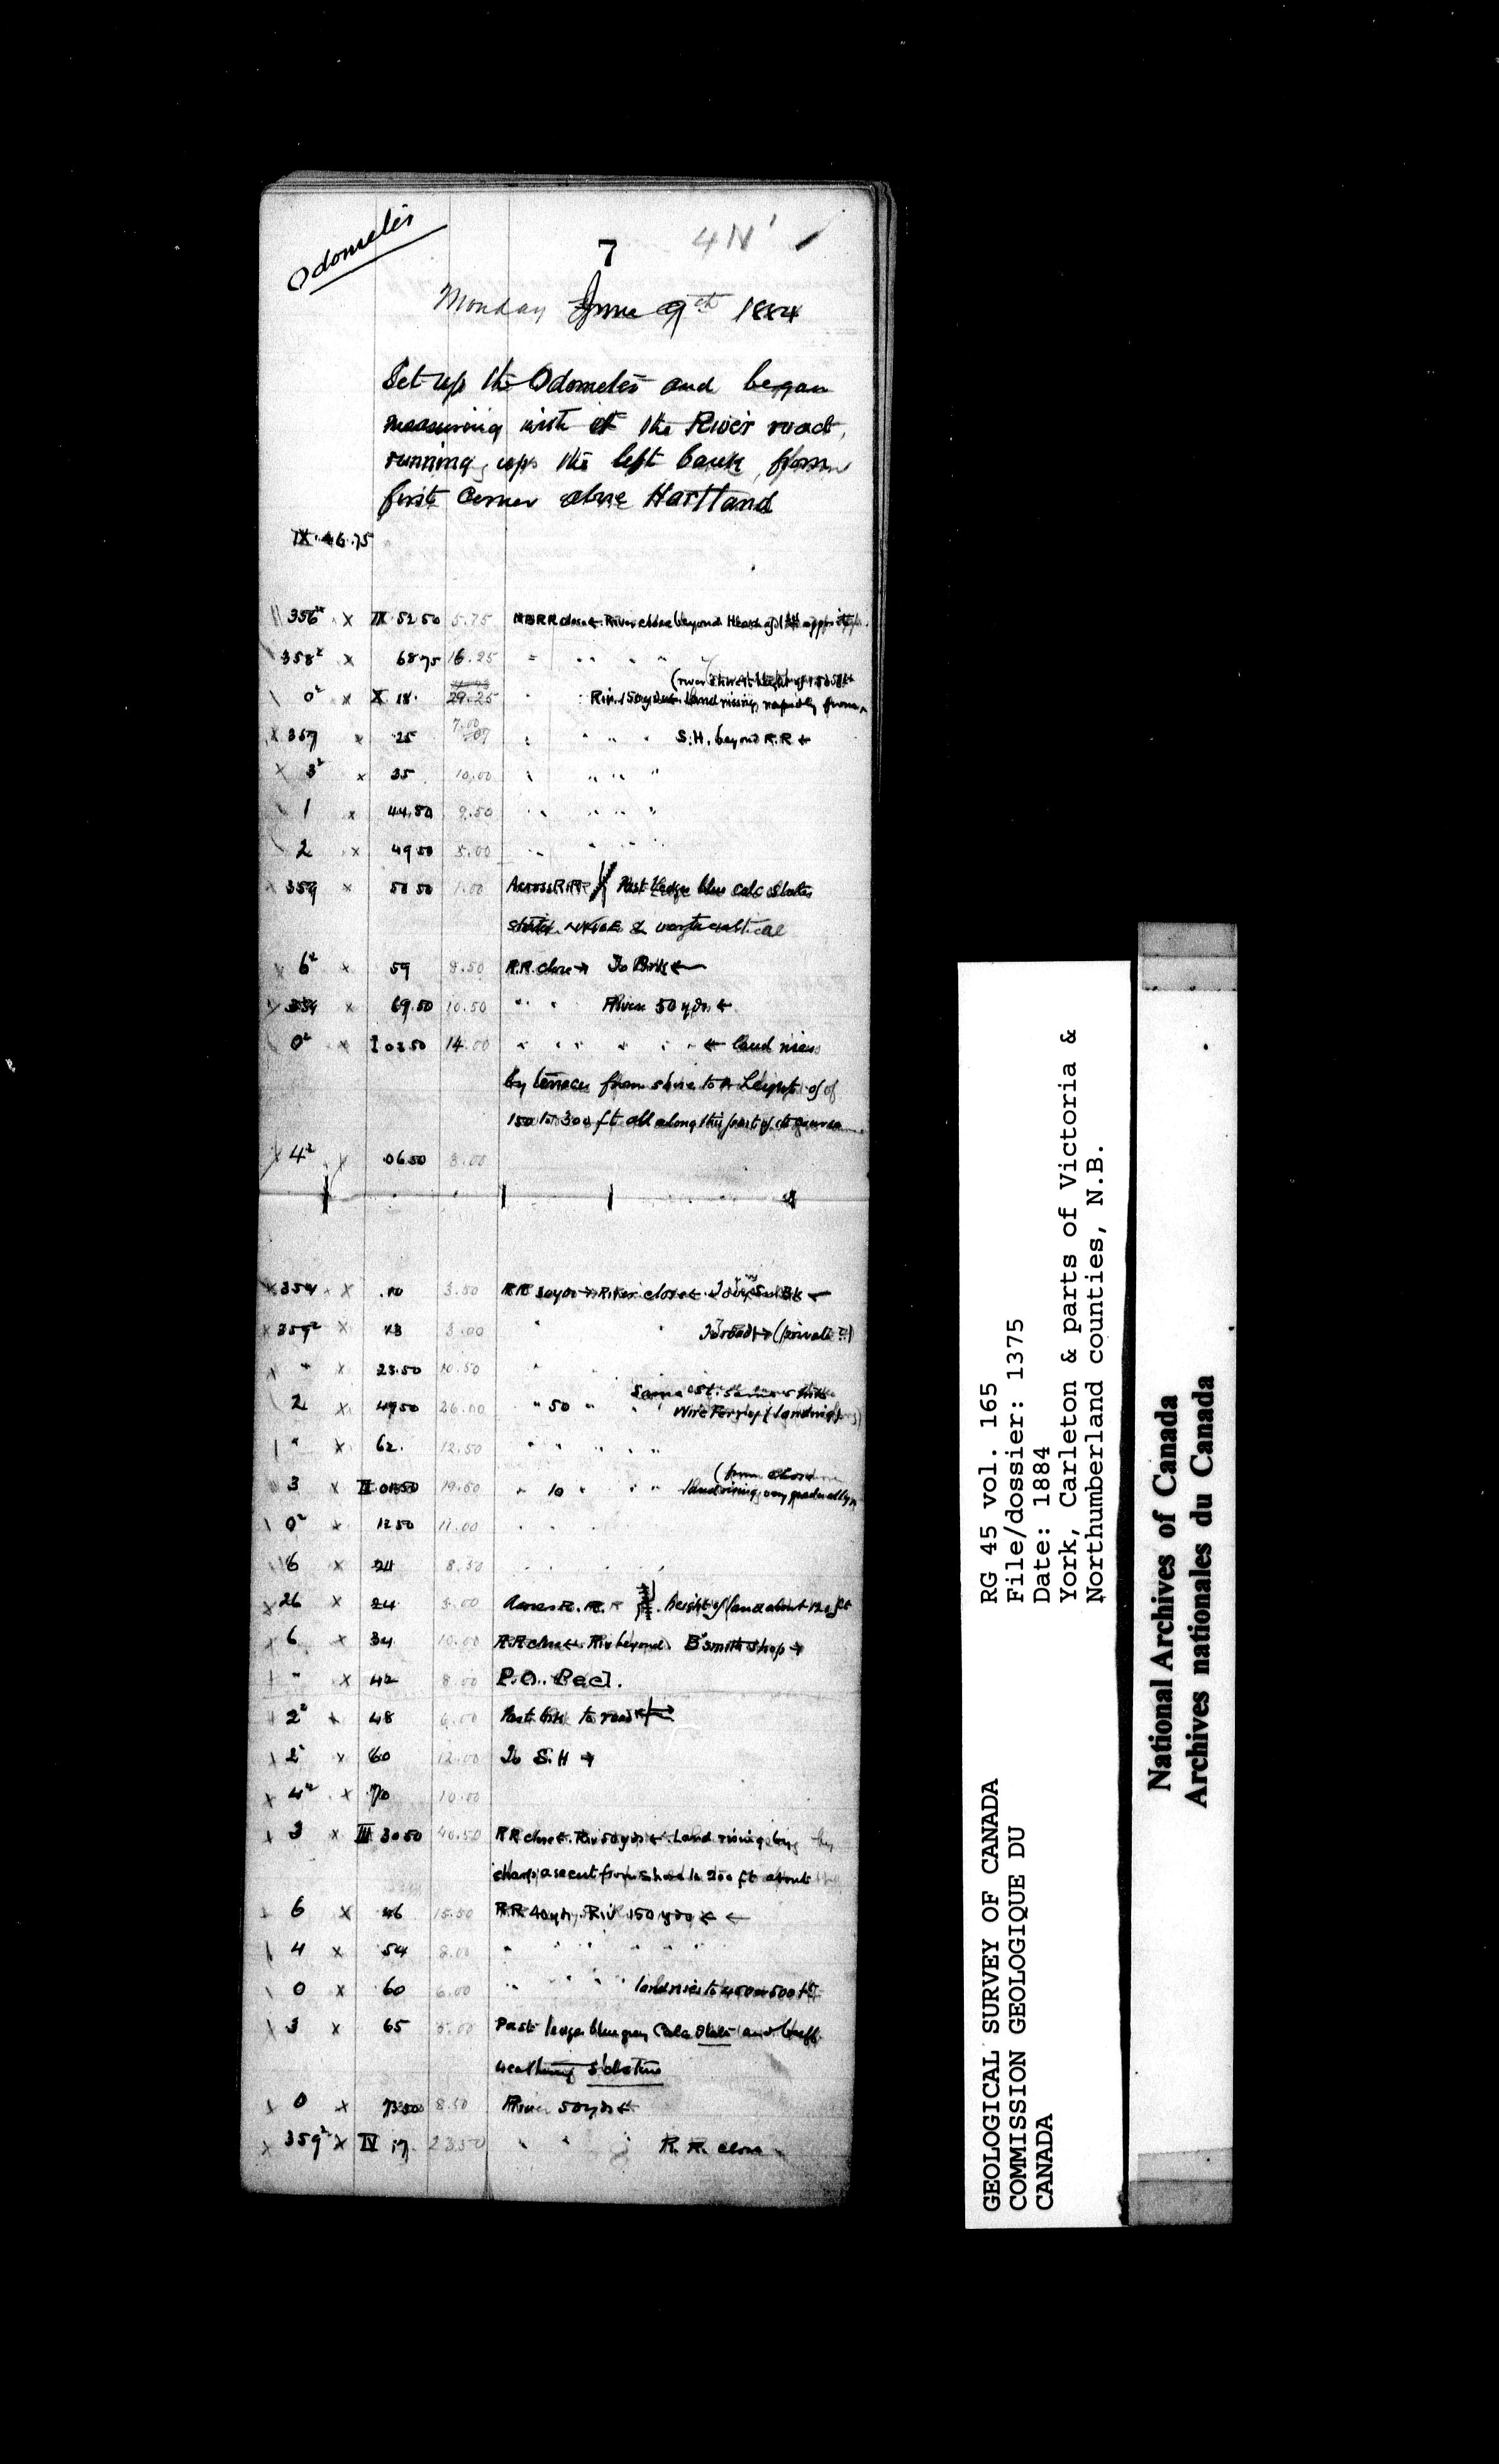 Odometer
7
4N'
Monday June 9th 1884
Set up the Odometer and began
measuring with it the River road,
running up the left bank, from
first Corner above Hartland
IX.46.75
356² x IX 52 50 5.75 NBRR close ← River close beyond
358² x 68 75 16.25 " " " " "
0² x X 18. 29.25 Riv. 150 yds ← land rising rapidly from
357 x 25 7.00 S.H. beyond R.R ←
3² x 35 10.00
1 x 44.50 9.50
2 x 49 50 5.00
359 x 50 50 1.00 Across R.R. Past ledge blue calc slates
6² x 59 8.50 R.R. close → To Brk ←
x 69.50 10.50 " " River 50 yds ←
0² x I 03 50 14.00 " " " " ← land rises
by terraces from shore to a height of
150 to 300 ft all along this part of
4² 06 50 3.00
354 x .10 3.50 RR 30 yds → River close ←
359² x 13 3.00 To road → (private?)
" x 23.50 10.50
2 x 49 50 26.00 " 50 " Wire Ferry (landing)
" x 62. 12.50 " " " " "
3 x II 01 50 19.50 " 10 " " " land rising very gradually
0² x 12 50 11.00
6 x 8.50
26 x 24 3.00 Across R.R. height of land about 120 ft
6 x 34 10.00 RR close ← Riv beyond B'smith shop →
" x 42 8.00 P.O. Peel.
2² x 48 6.00 to road
2 x 60 12.00 To S.H →
4² x 70 10.00
3 x III 30 50 40.50 RR close ← Riv 50 yds ← Land rising by
sharp ascent from shore to 200 ft about
6 x 46 15.50 RR 40 yds Riv 150 yds ←
4 x 54 8.00 " " " " " "
0 x 60 6.00 land rises to 450 or 500 ft
3 x 65 5.00 Past ledge blue gray Calc Slate and buff
weathering
0 x 73 50 8.50 River 50 yds ←
359² x IV 17 23.50 " " " R.R. close
GEOLOGICAL SURVEY OF CANADA
COMMISSION GEOLOGIQUE DU
CANADA
RG 45 vol. 165
File/dossier: 1375
Date: 1884
York, Carleton & parts of Victoria &
Northumberland counties, N.B.
National Archives of Canada
Archives nationales du Canada